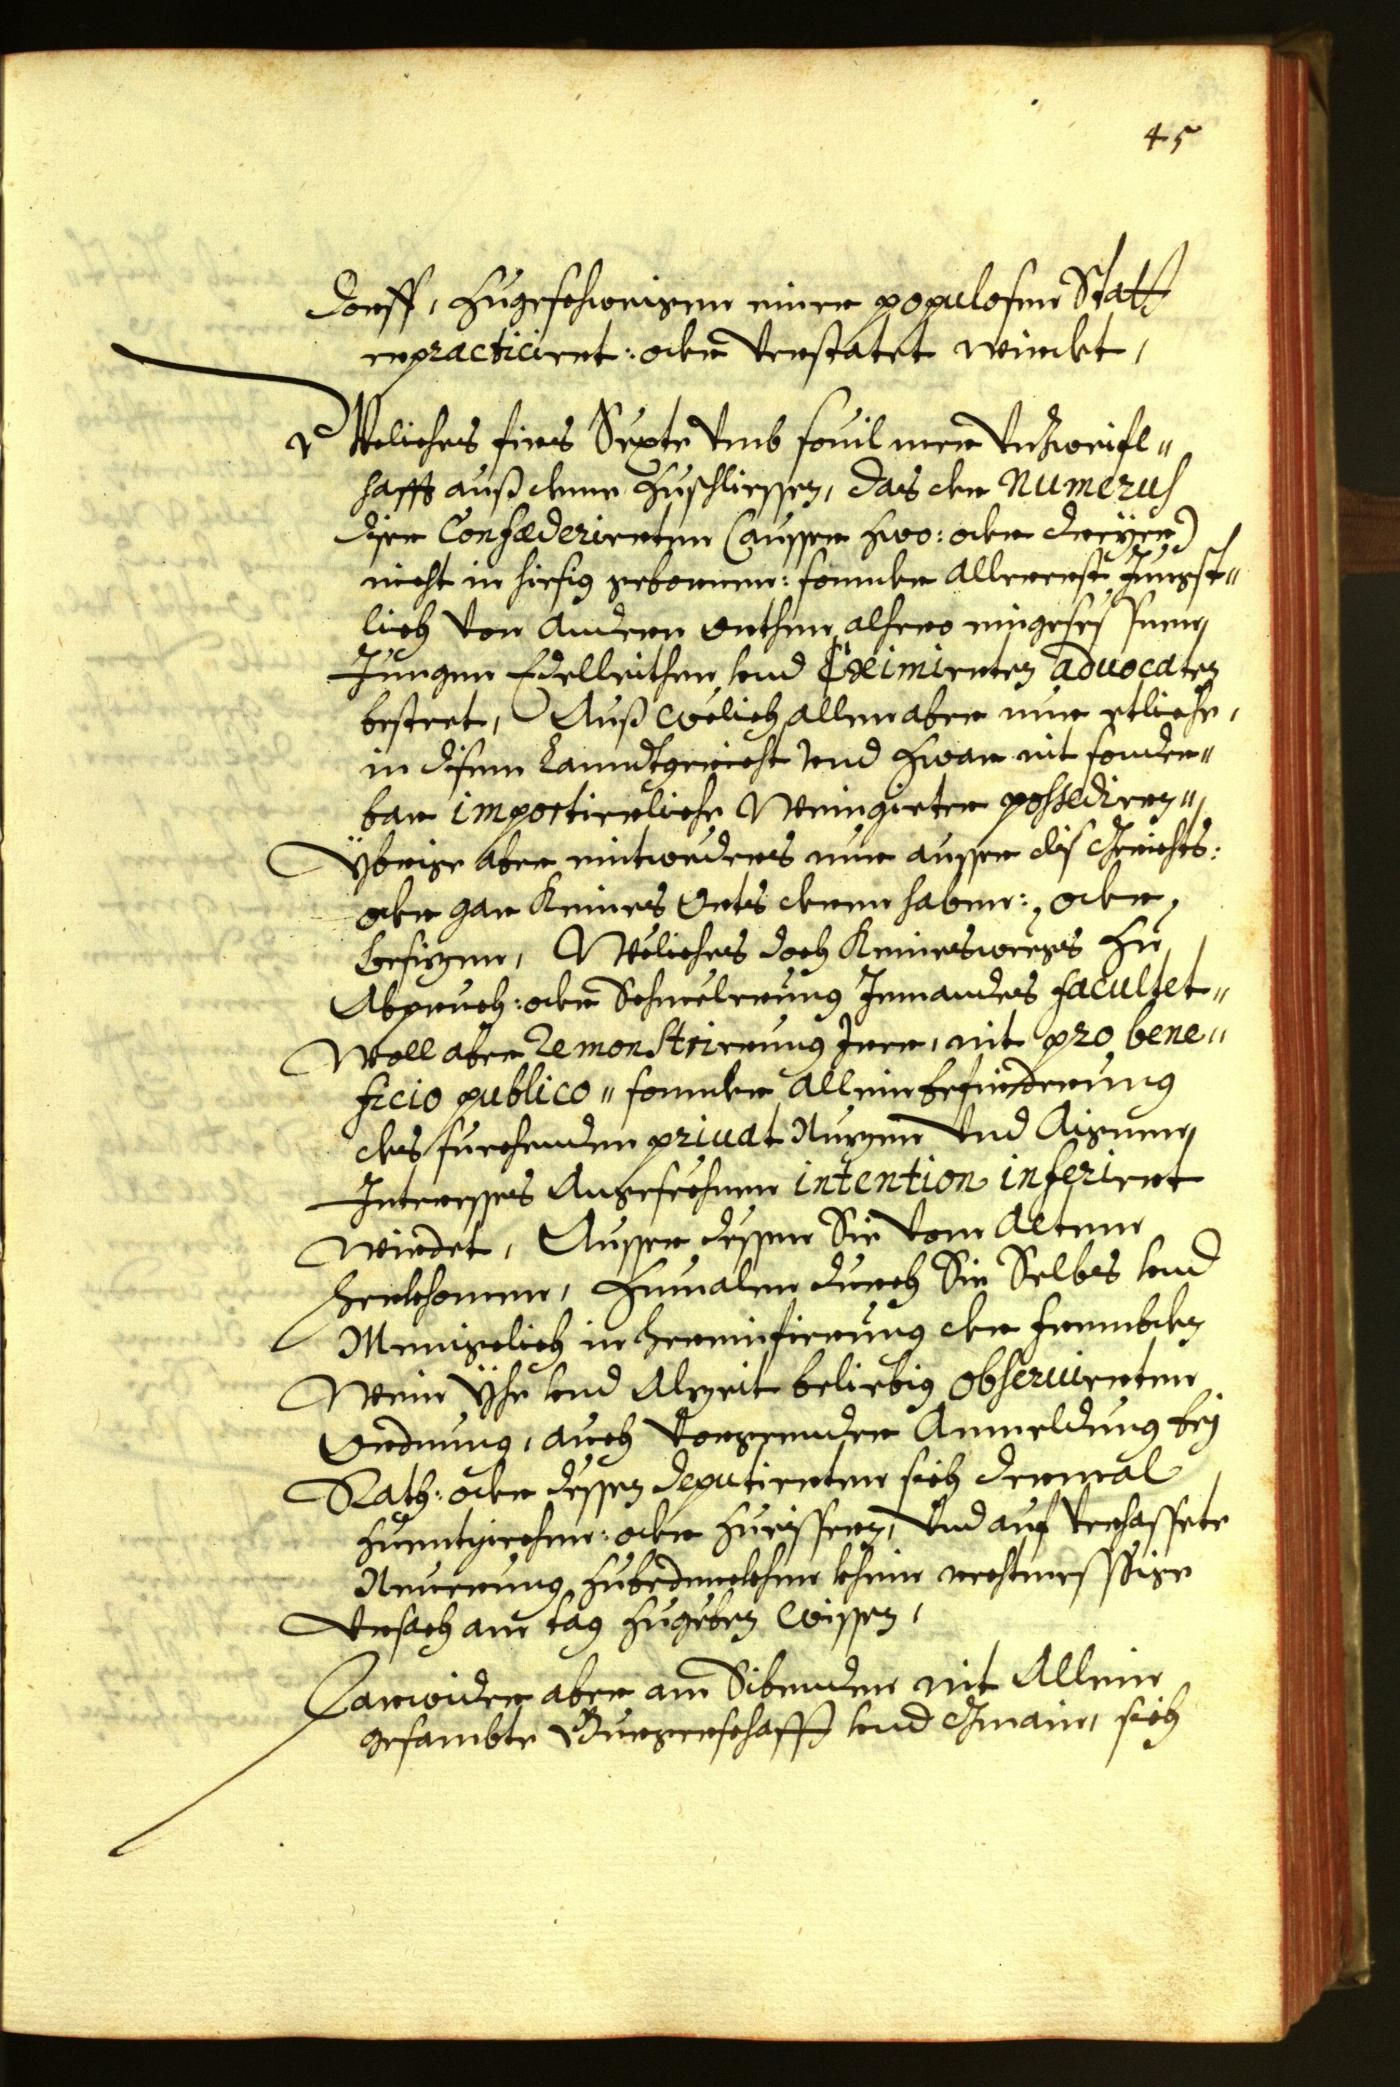 45
dorff, zugeschweigen einer populosen Statt
repracticiert: oder verstatet wirdet,
Weliches fürs Sexte vmb souil mer vnzweifl"
hafft auß deme zuschliessen, das der Numerus
diser Confœderierten (ausser zwo: oder dreyer)
nicht in hiesig gebornen: sonnder allererst Jungst"
lich von andern orthen alhero eingesessnen,
Jungen Edlleithen vnd Eximierten aduocaten
besteet, Auß welich allen aber nur etliche,
in disem Lanndtgericht vnd zwar nit sonder"
bar importierliche Weingieter possediern"
Ybrige aber eintweders nur ausser dis Grichts:
oder gar Keines Orts deren haben: oder
besizen, Weliches doch Keineswegs zu
Abpruch: oder Schmelerung Jemandes facultet"
Woll aber remonstrierung Jrer, nit pro bene"
ficio publico" sonnder allein befürderung
des suechenden priuat Nuzen vnd Aignen
Interesses Angesechnen intention inferiert
wirdet, Ausser dessen Sie vom Altem
herkhomen, zumalen durch Sie Selbs vnd
Menigelich in hereinfierung der frembden
Wein yhe vnd Alzeit beliebig obseruierten
Ordnung, auch vorgeender Anmeldung bey
Rath: oder dessen deputierten sich dermal
zuentziechen: oder zureissen, vnd auf verhasste
Neuerung zubedenckhen kheine rechtmessige
Vrsach an tag zugeben wissen,
Darwider aber am Sibenden nit Allein
gesambte Burgerschafft vnd Gmain, sich